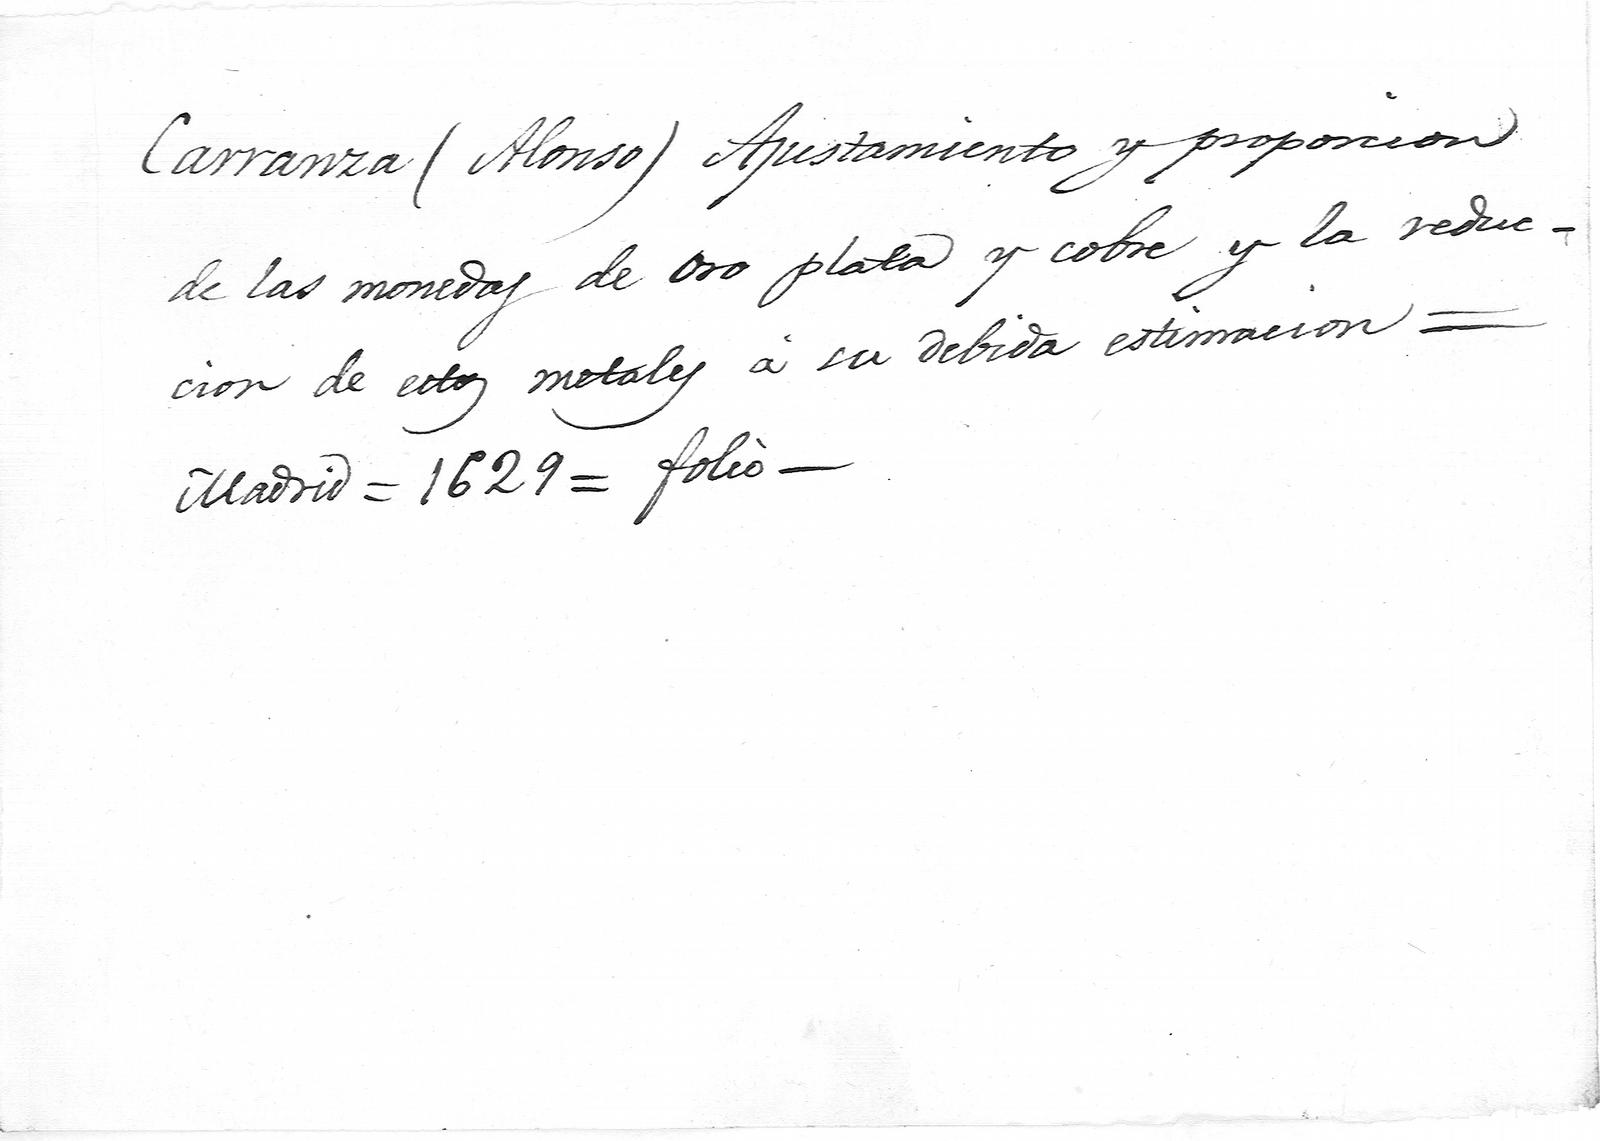 Carranza (Alonso) Ajustamiento y proporcion
de las monedas de oro plata y cobre y la reduc-
cion de estos metales á su debida estimacion =
Madrid = 1629 = folio —